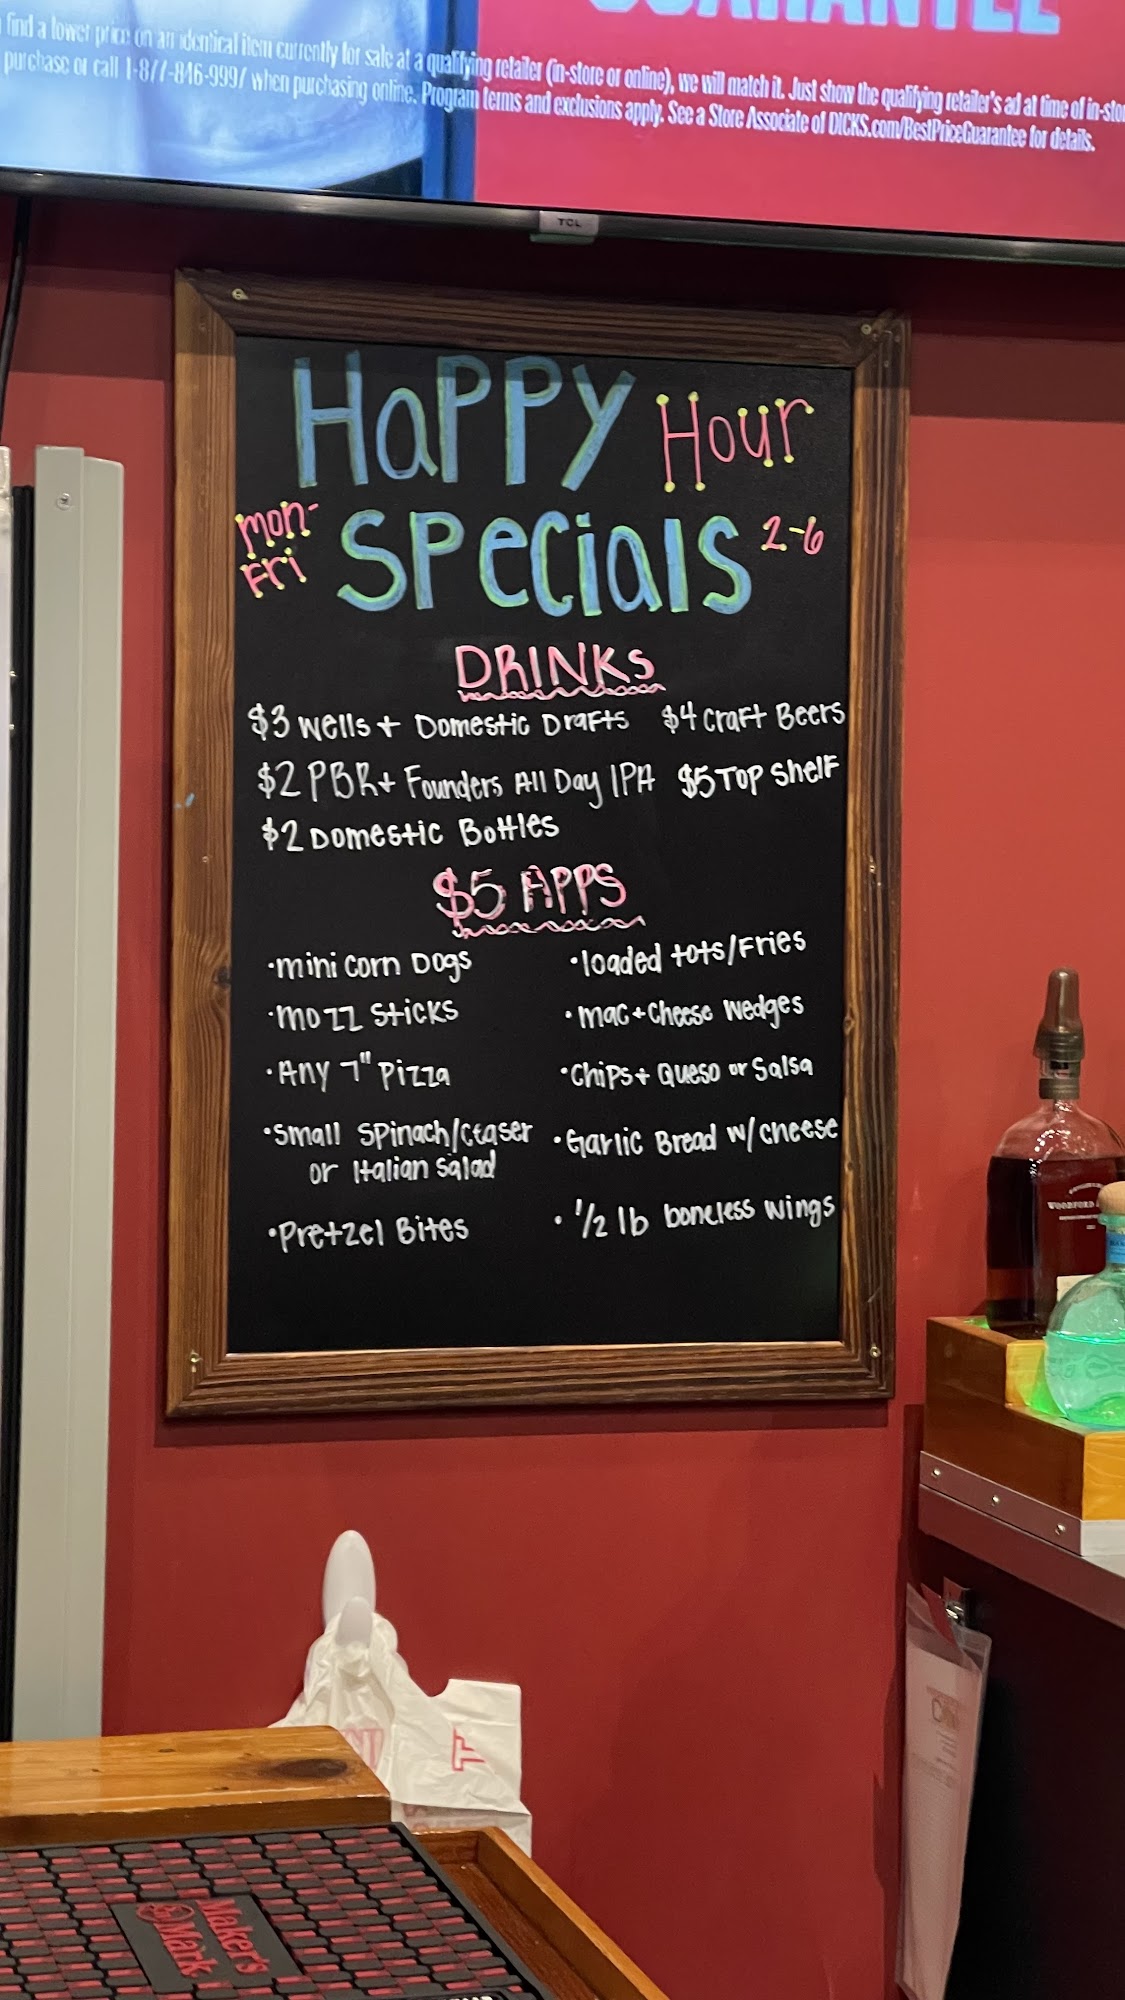 GUARANTEE
find a lower price on an identical item currently for sale at a qualifying retailer (in-store or online), we will match it. Just show the qualifying retailer's ad at time of in-sto
purchase or call 1-877-846-9997 when purchasing online. Program terms and exclusions apply. See a Store Associate of DICKS.com/BestPriceGuarantee for details.
TCL
HaPPY Hour
Mon-Fri SPecials 2-6
DRINKs
$3 Wells + Domestic Drafts $4 Craft Beers
$2 PBR + Founders All Day IPA $5 Top Shelf
$2 Domestic Bottles
$5 APPS
·mini corn Dogs ·loaded tots/Fries
·mozz Sticks ·mac + Cheese Wedges
·Any 7" Pizza ·Chips + Queso or Salsa
·Small Spinach/Ceaser ·Garlic Bread w/cheese
or Italian Salad
·Pretzel Bites ·1/2 lb boneless wings
WOODFORD
Maker's
Mark